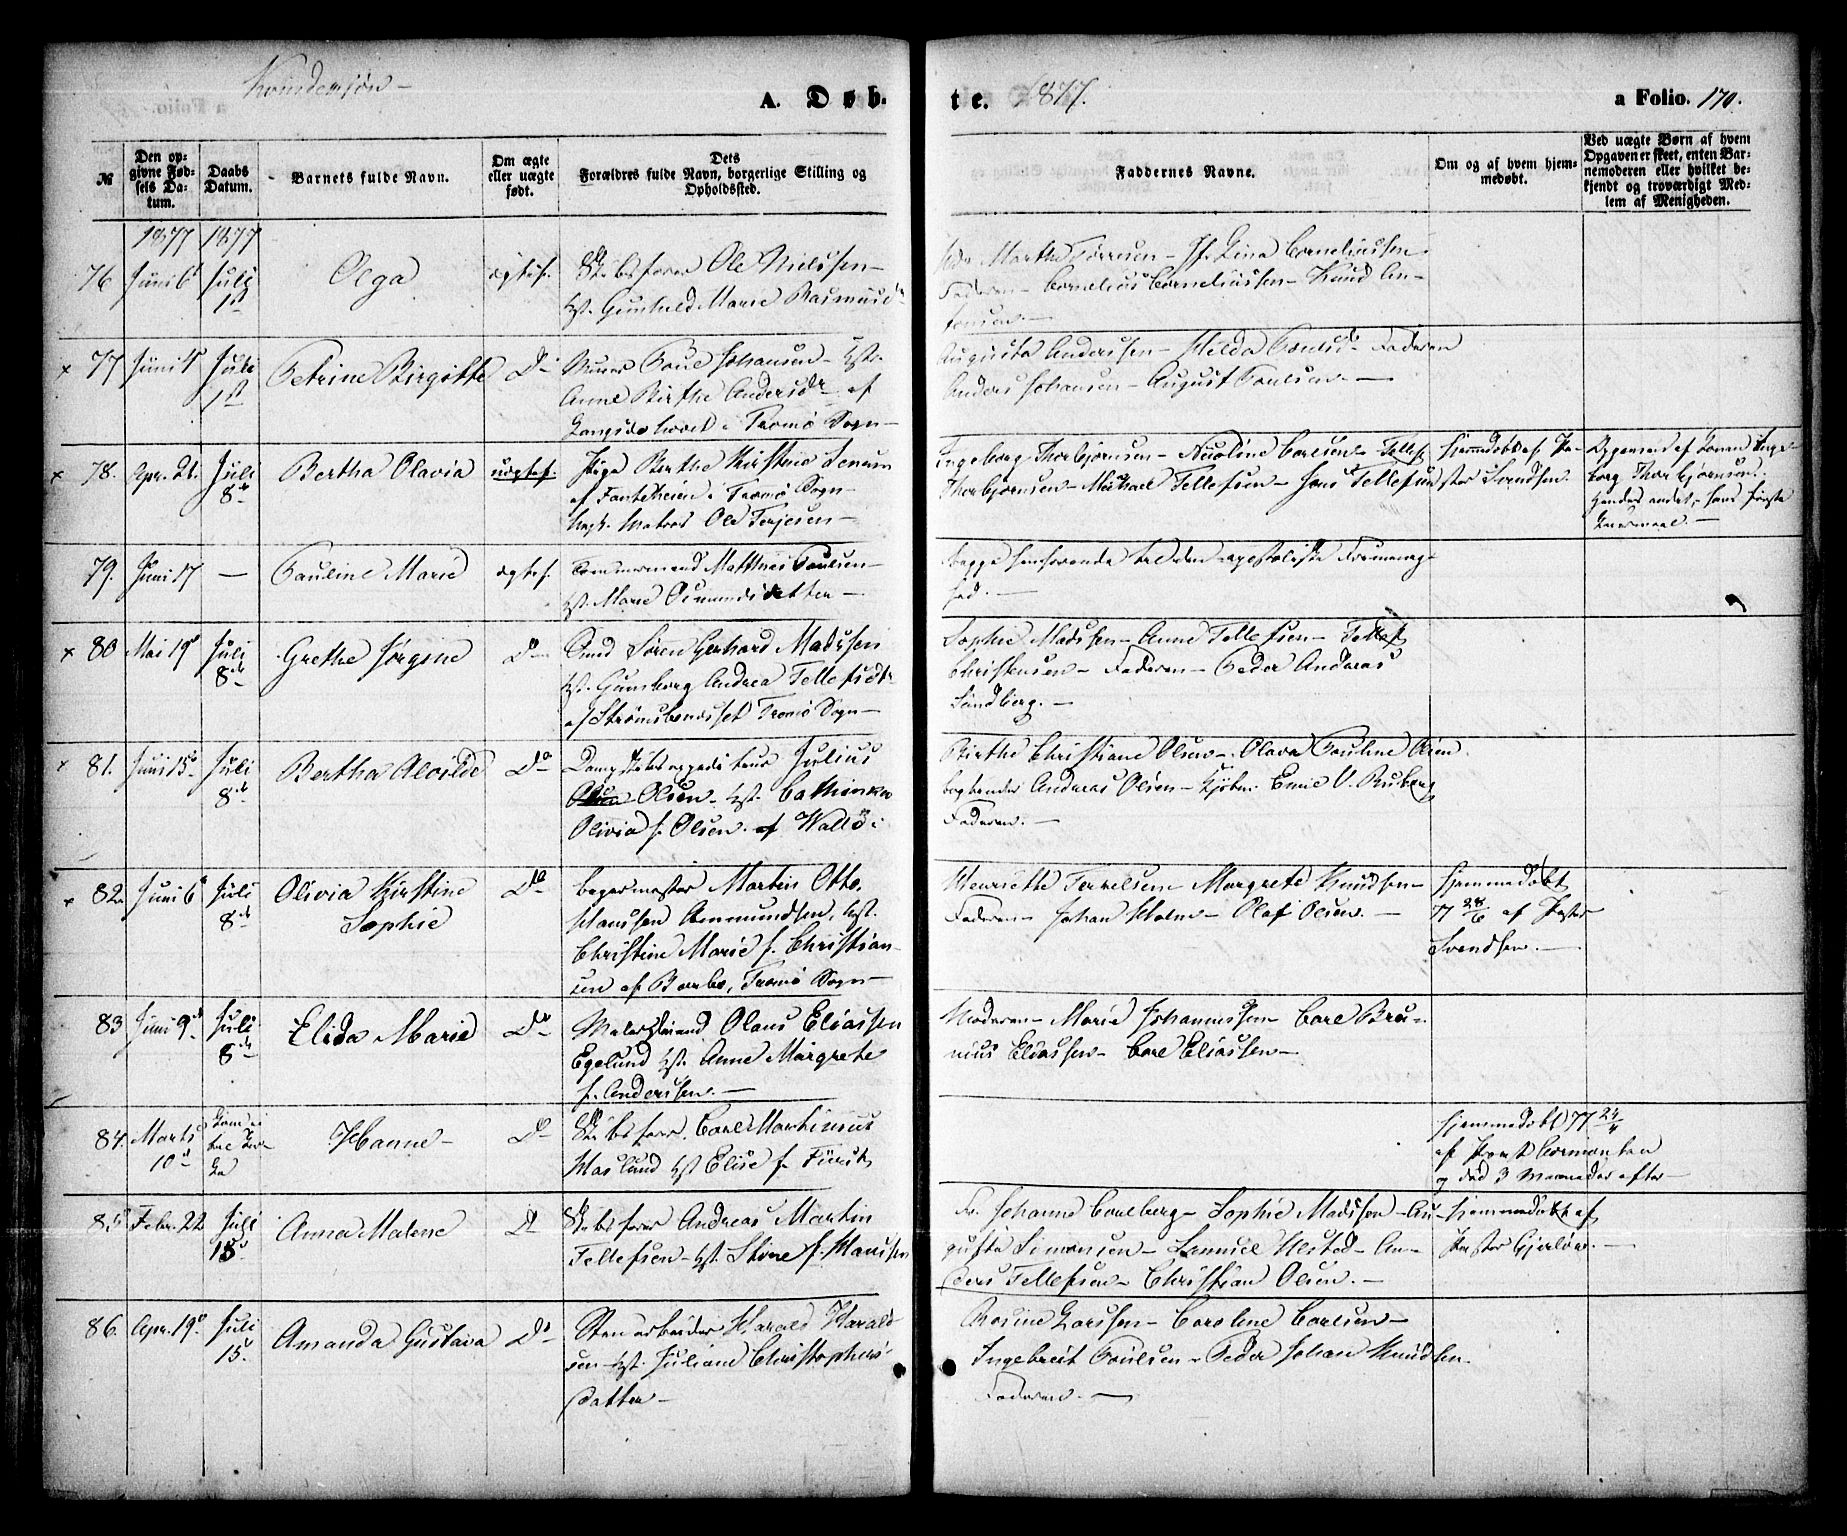 Kvindekjøn
A. Døb-
te. 1877.
a Folio. 170.
№
Den op-
givne Fød-
sels Da-
tum.
Daabs
Datum.
Barnets fulde Navn.
Om ægte
eller uægte
født.
Dets
Forældres fulde Navn, borgerlige Stilling og
Opholdssted.
Faddernes Navne.
Om og af hvem hjem-
medøbt.
Ved uægte Børn af hvem
Opgaven er skeet, enten Bar-
nemoderen eller hvilket be-
kjendt og troværdigt Med-
lem af Menigheden.
1877 1877
76 Juni 6 Juli 1st Olga ægtef. Ole Nielssen
Hst. Gunhild Marie Rasmusdr
Marthe Tørresen - Jf. Lina Corneliussen
Faderen - Cornelius Corneliussen - Knud An-
tonsen.
x 77 Juni 4 Juli 1st Petrine Birgitte Do Poul Johansen - Hst.
Anne Birthe Andersdr af
i Tromø Sogn
Augusta Anderssen - Hilda Poulsd - Faderen
Anders Johansen - August Poulsen.
x 78. Apr. 26. Juli 8de Bertha Olavia uægtef. Pige Berthe Kirstine
af Fanteheien i Tromø Sogn
Ungk. Matros Ole Terjesen
Ingeborg Thorbjørnsen - Nicoline Carlsen - Tellef
Thorbjørnsen - Michael Tellefsen - Jens Tellefsen
Hjemmedøbt af Pa-
stor Svendsen.
Opgivend af Konen Inge-
borg Thorbjørnsen.
Hendes andet, hans første
Leiermaal.
79. Juni 17 - Pauline Marie ægtef. Tømmermand Mathias Poulsen
Hst. Marie Osmundsdatter
Begge henhørende til den apostoliske Frimenig-
hed.
x 80 Mai 19 Juli 8de Grethe Jørgine Do Smed Søren Gerhard Madssen
Hst. Gunborg Andrea Tellefsdtr
af Strømsbuneset Tromø Sogn
Sophie Madssen - Anne Tellefsen - Tellef
Christensen - Faderen - Peder Andreas
Sundberg.
x 81. Juni 15 Juli 8de Bertha Alvilde Do Dampskibsexpediteur Julius
Olsen - Hst. Cathinka
Olivia f. Olsen. af Wallø i
Birthe Christiane Olsen - Olava Pauline Olsen
Andreas Olsen - Kjøbm. Emil V. Ruberg
Faderen.
x 82. Juni 6 Juli 8de Olivia Kirstine
Sophie Do Bagermester Martin Otto
Hanssen Ammundsen, Hst.
Christine Marie f. Christian-
sen af Barbo, Tromø Sogn
Henriette Terkelsen - Margrete Knudsen
Faderen - Johan Holm - Olaf Olsen.
Hjemmedøbt
77 28/6 af Pastor
Svendsen.
83 Juni 9de Juli 8de Elida Marie Do Malersvend Olaus Eliassen
Egelund Hst. Anne Margrete
f. Anderssen.
Moderen - Marie Johannessen - Carl Bru-
nius Eliassen - Carl Eliassen
84. Marts 10de Hanne Do Skibsfører Carl Martinius
Haslund Hst Elise f. Fürst
Hjemmedøbt 77 24/4
af Provst Cormontan
og død 3 Maaneder efter
85 Febr. 22 Juli 15 Anna Malene Do Skibsfører Andreas Martin
Tellefsen - Hst. Stine f. Hanssen
Fr. Johanne Carlberg - Sophie Madssen - Au-
gusta Simonsen - Samuel Ulsted - An-
ders Tellefsen - Christian Olsen.
Hjemmedøbt af
Pastor Gjerløw.
86. Apr. 19. Juli 15. Amanda Gustava Do Stenarbeider Harald Harald-
sen - Hst. Juliane Christophers-
datter
Rosine Larssen - Caroline Carlsen
Ingebreit Poulsen - Peder Johan Knudsen
Faderen.